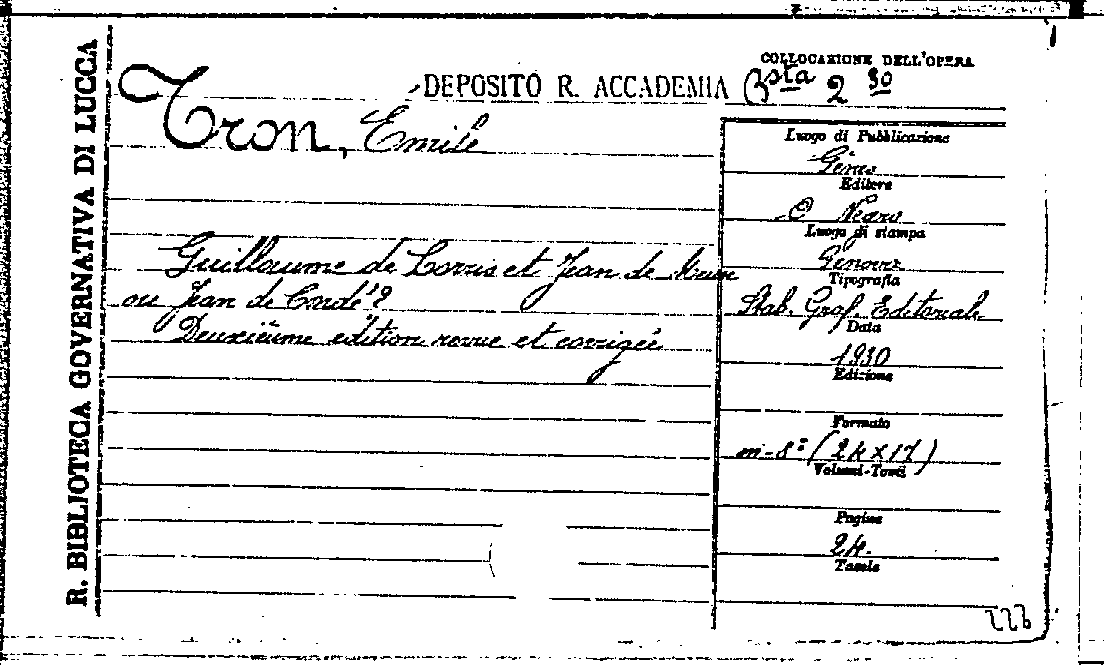 R. BIBLIOTECA GOVERNATIVA DI LUCCA
COLLOCAZIONE DELL'OPERA
DEPOSITO R. ACCADEMIA Bsta 2 30
Tron, Émile
Guillaume de Lorris et Jean de Meun
ou Jean de Condé?
Deuxième edition revue et corrigée
Luogo di Pubblicazione
Gênes
Editore
O Negro
Luogo di stampa
Genova
Tipografia
Stab. Graf. Editoriale
Data
1930
Edizione
Formato
in-8° (24x17)
Volumi-Tomi
Pagine
24.
Tavole
223